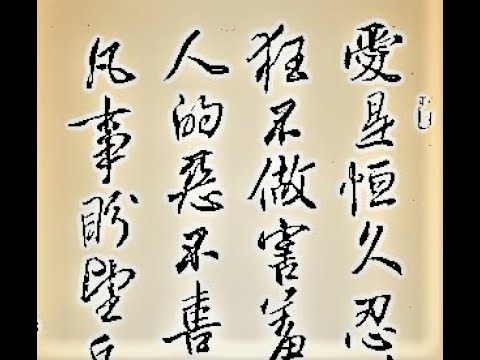 愛是恒久忍
狂不做害羞
人的惡不喜
凡事盼望